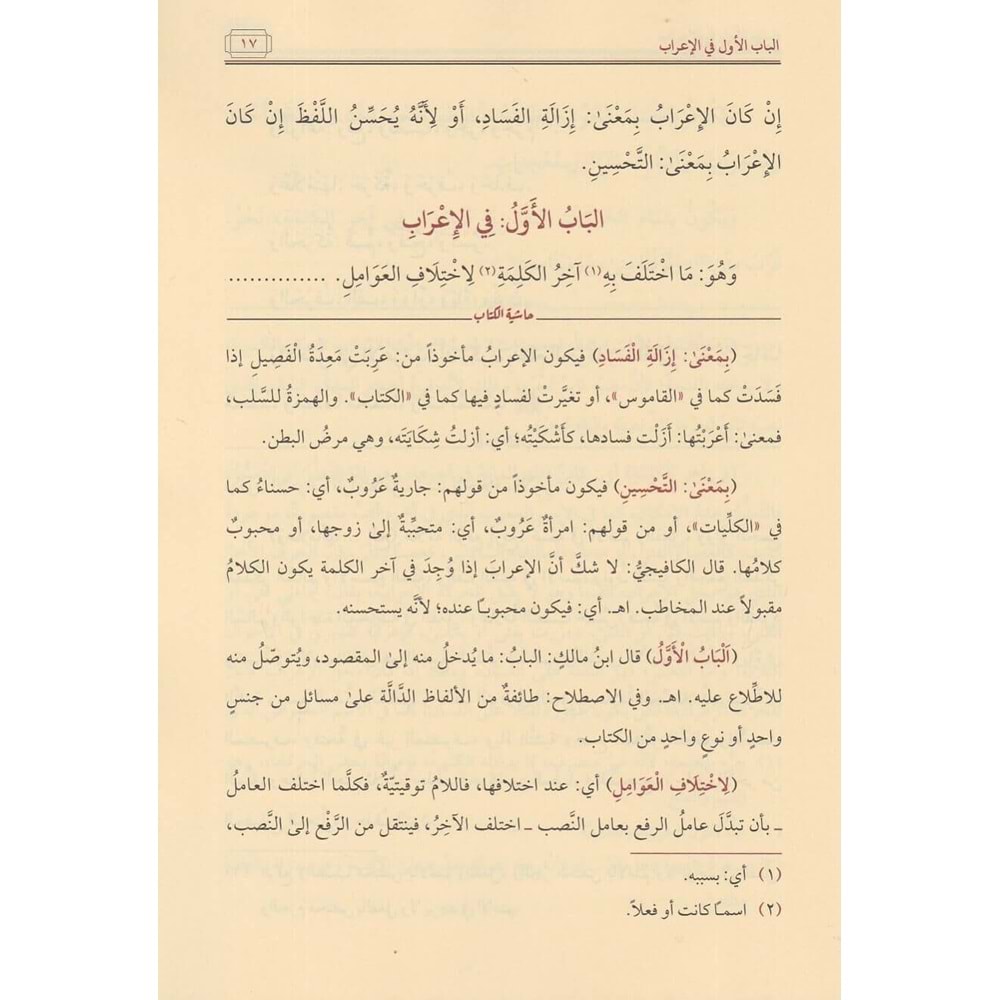 الباب الأول في الإعراب
١٧
إِنْ كَانَ الإِعْرَابُ بِمَعْنَىٰ: إِزَالَةِ الفَسَادِ، أَوْ لِأَنَّهُ يُحَسِّنُ اللَّفْظَ إِنْ كَانَ
الإِعْرَابُ بِمَعْنَىٰ: التَّحْسِينِ.
البَابُ الأَوَّلُ: فِي الإِعْرَابِ
وَهُوَ: مَا اخْتَلَفَ بِهِ(١) آخِرُ الكَلِمَةِ(٢) لِاخْتِلَافِ العَوَامِلِ. ..............
حاشية الكتاب
(بِمَعْنَىٰ: إِزَالَةِ الْفَسَادِ) فيكون الإعرابُ مأخوذاً من: عَرِبَتْ مَعِدَةُ الْفَصِيلِ إذا
فَسَدَتْ كما في «القاموس»، أو تغيَّرتْ لفسادٍ فيها كما في «الكتاب». والهمزةُ للسَّلب،
فمعنىٰ: أَعْرَبْتُها: أَزَلْت فسادها، كأَشْكَيْتُه؛ أي: أزلتُ شِكَايَتَه، وهي مرضُ البطن.
(بِمَعْنَىٰ: التَّحْسِينِ) فيكون مأخوذاً من قولهم: جاريةٌ عَرُوبٌ، أي: حسناءُ كما
في «الكلِّيات»، أو من قولهم: امرأةٌ عَرُوبٌ، أي: متحبِّبةٌ إلىٰ زوجها، أو محبوبٌ
كلامُها. قال الكافيجيُّ: لا شكَّ أنَّ الإعرابَ إذا وُجِدَ في آخر الكلمة يكون الكلامُ
مقبولاً عند المخاطب. اهـ. أي: فيكون محبوباً عنده؛ لأنَّه يستحسنه.
(اَلْبَابُ الْأَوَّلُ) قال ابنُ مالكٍ: البابُ: ما يُدخلُ منه إلىٰ المقصود، ويُتوصّلُ منه
للاطِّلاع عليه. اهـ. وفي الاصطلاح: طائفةٌ من الألفاظ الدَّالَّة علىٰ مسائل من جنسٍ
واحدٍ أو نوعٍ واحدٍ من الكتاب.
(لِاخْتِلَافِ الْعَوَامِلِ) أي: عند اختلافها، فاللامُ توقيتيّةٌ، فكلَّما اختلف العاملُ
ـ بأن تبدَّلَ عاملُ الرفع بعامل النَّصب ـ اختلف الآخِرُ، فينتقل من الرَّفْع إلىٰ النَّصب،
(١) أي: بسببه.
(٢) اسماً كانت أو فعلاً.